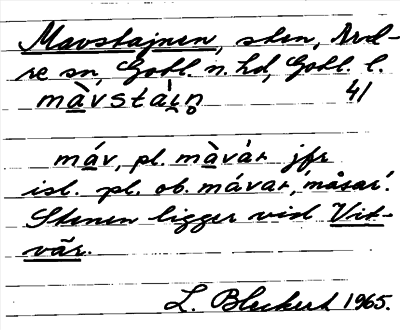 Mavstajnen, sten, Nord-
re sn, Gotl. n. hd, Gotl. l.
màvstàin 41
máv, pl. màvár jfr
isl. pl. ob. mávar, 'måsar'.
Stenen ligger vid Vit-
vär.
L. Bleckert 1965.